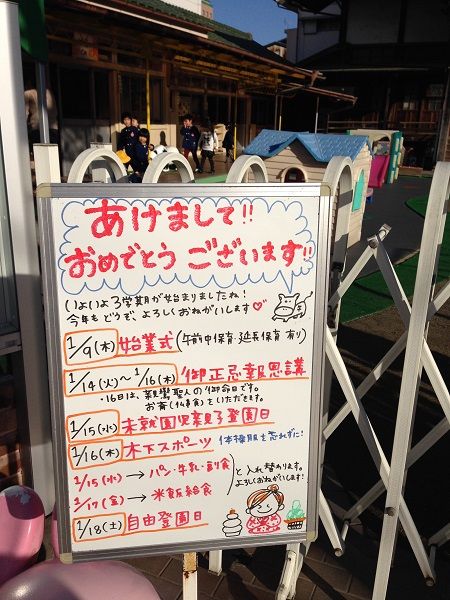 あけまして!!
おめでとう ございます!!
いよいよ3学期が始まりましたね!
今年もどうぞ、よろしくおねがいします♡
1/9(木) 始業式 (午前中保育・延長保育 有り)
1/14(火)〜1/16(木) 御正忌報恩講
・16日は、親鸞聖人の御命日です。
お斎(仏食)をいただきます。
1/15(水) 未就園児親子登園日
1/16(木) 木下スポーツ 体操服を忘れずに!
1/15(水)→パン・牛乳・副食
1/17(金)→米飯給食
と入れ替わります。
よろしくおねがいします!
1/18(土) 自由登園日